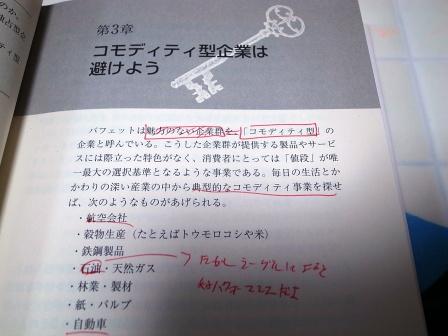 第3章
コモディティ型企業は
避けよう
バフェットは魅力のない企業群を、「コモディティ型」の
企業と呼んでいる。こうした企業群が提供する製品やサービ
スには際立った特色がなく、消費者にとっては「値段」が唯
一最大の選択基準となるような事業である。毎日の生活とか
かわりの深い産業の中から典型的なコモディティ事業を探せ
ば、次のようなものがあげられる。
・航空会社
・穀物生産（たとえばトウモロコシや米）
・鉄鋼製品
・石油・天然ガス
・林業・製材
・紙・パルプ
・自動車